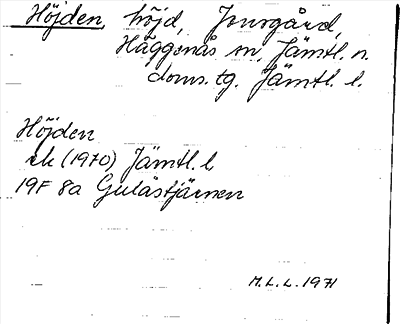 Höjden, höjd, Jonsgård,
Häggenås sn, Jämtl. n.
doms. tg. Jämtl. l.
Höjden
ek (1970) Jämtl. l
19F 8a Gulåstjärnen
M.L.L. 1971